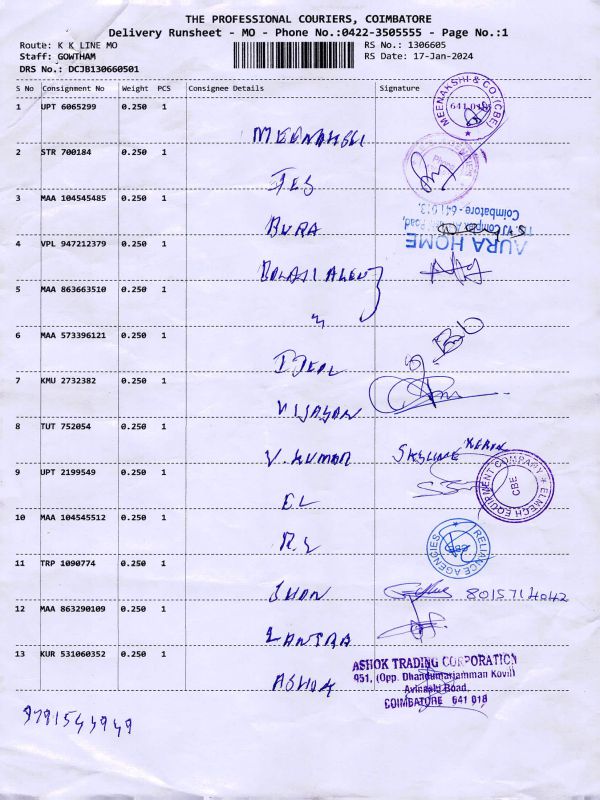 THE PROFESSIONAL COURIERS, COIMBATORE
Delivery Runsheet - MO - Phone No.:0422-3505555 - Page No.:1
Route: K K LINE MO RS No.: 1306605
Staff: GOWTHAM RS Date: 17-Jan-2024
DRS No.: DCJB130660501
S No Consignment No Weight PCS Consignee Details Signature
MEENAKSHI & CO. (CBE) 641 018
1 UPT 6065299 0.250 1
MEENAKSHI
2 STR 700184 0.250 1
3 MAA 104545485 0.250 1
Coimbatore - 641 013.
AURA HOME
AURA
4 VPL 947212379 0.250 1
5 MAA 863663510 0.250 1
6 MAA 573396121 0.250 1
IDEAL
7 KMU 2732382 0.250 1
VIJAYAN
8 TUT 752054 0.250 1
V. KUMAR SKYLINE
9 UPT 2199549 0.250 1
ELMECH EQUIPMENT COMPANY CBE
EL
10 MAA 104545512 0.250 1
RELIANCE AGENCIES CBE
11 TRP 1090774 0.250 1
8015714042
12 MAA 863290109 0.250 1
13 KUR 531060352 0.250 1
ASHOK TRADING CORPORATION
951, (Opp. Dhandumariamman Kovil)
Avinashi Road,
COIMBATORE 641 018
ASHOK